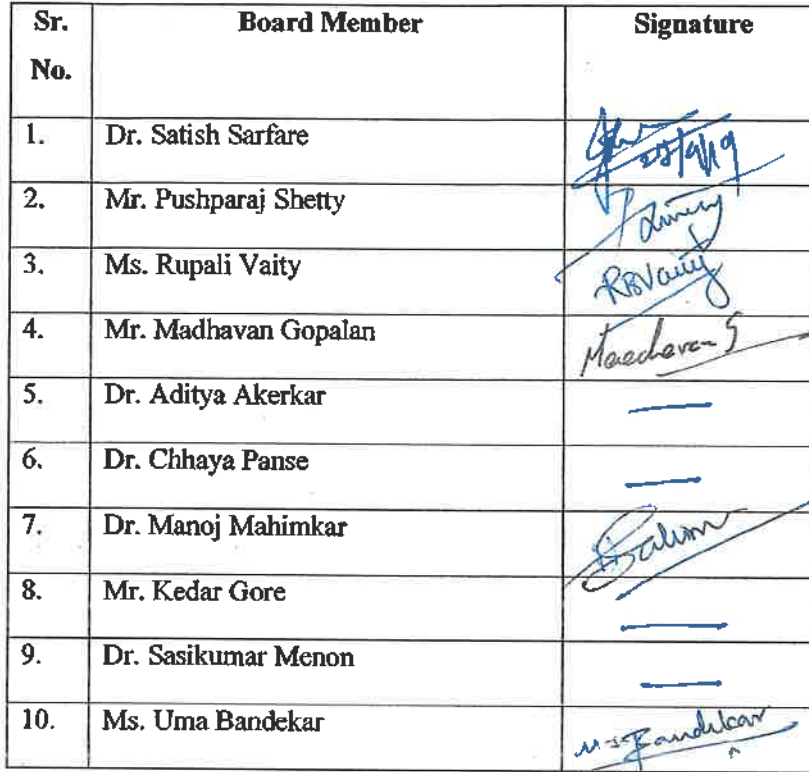 Sr. No. Board Member Signature
1. Dr. Satish Sarfare 28/9/19
2. Mr. Pushparaj Shetty
3. Ms. Rupali Vaity RBVaity
4. Mr. Madhavan Gopalan Maedhavan G
5. Dr. Aditya Akerkar —
6. Dr. Chhaya Panse —
7. Dr. Manoj Mahimkar
8. Mr. Kedar Gore —
9. Dr. Sasikumar Menon —
10. Ms. Uma Bandekar M.S. Bandekar